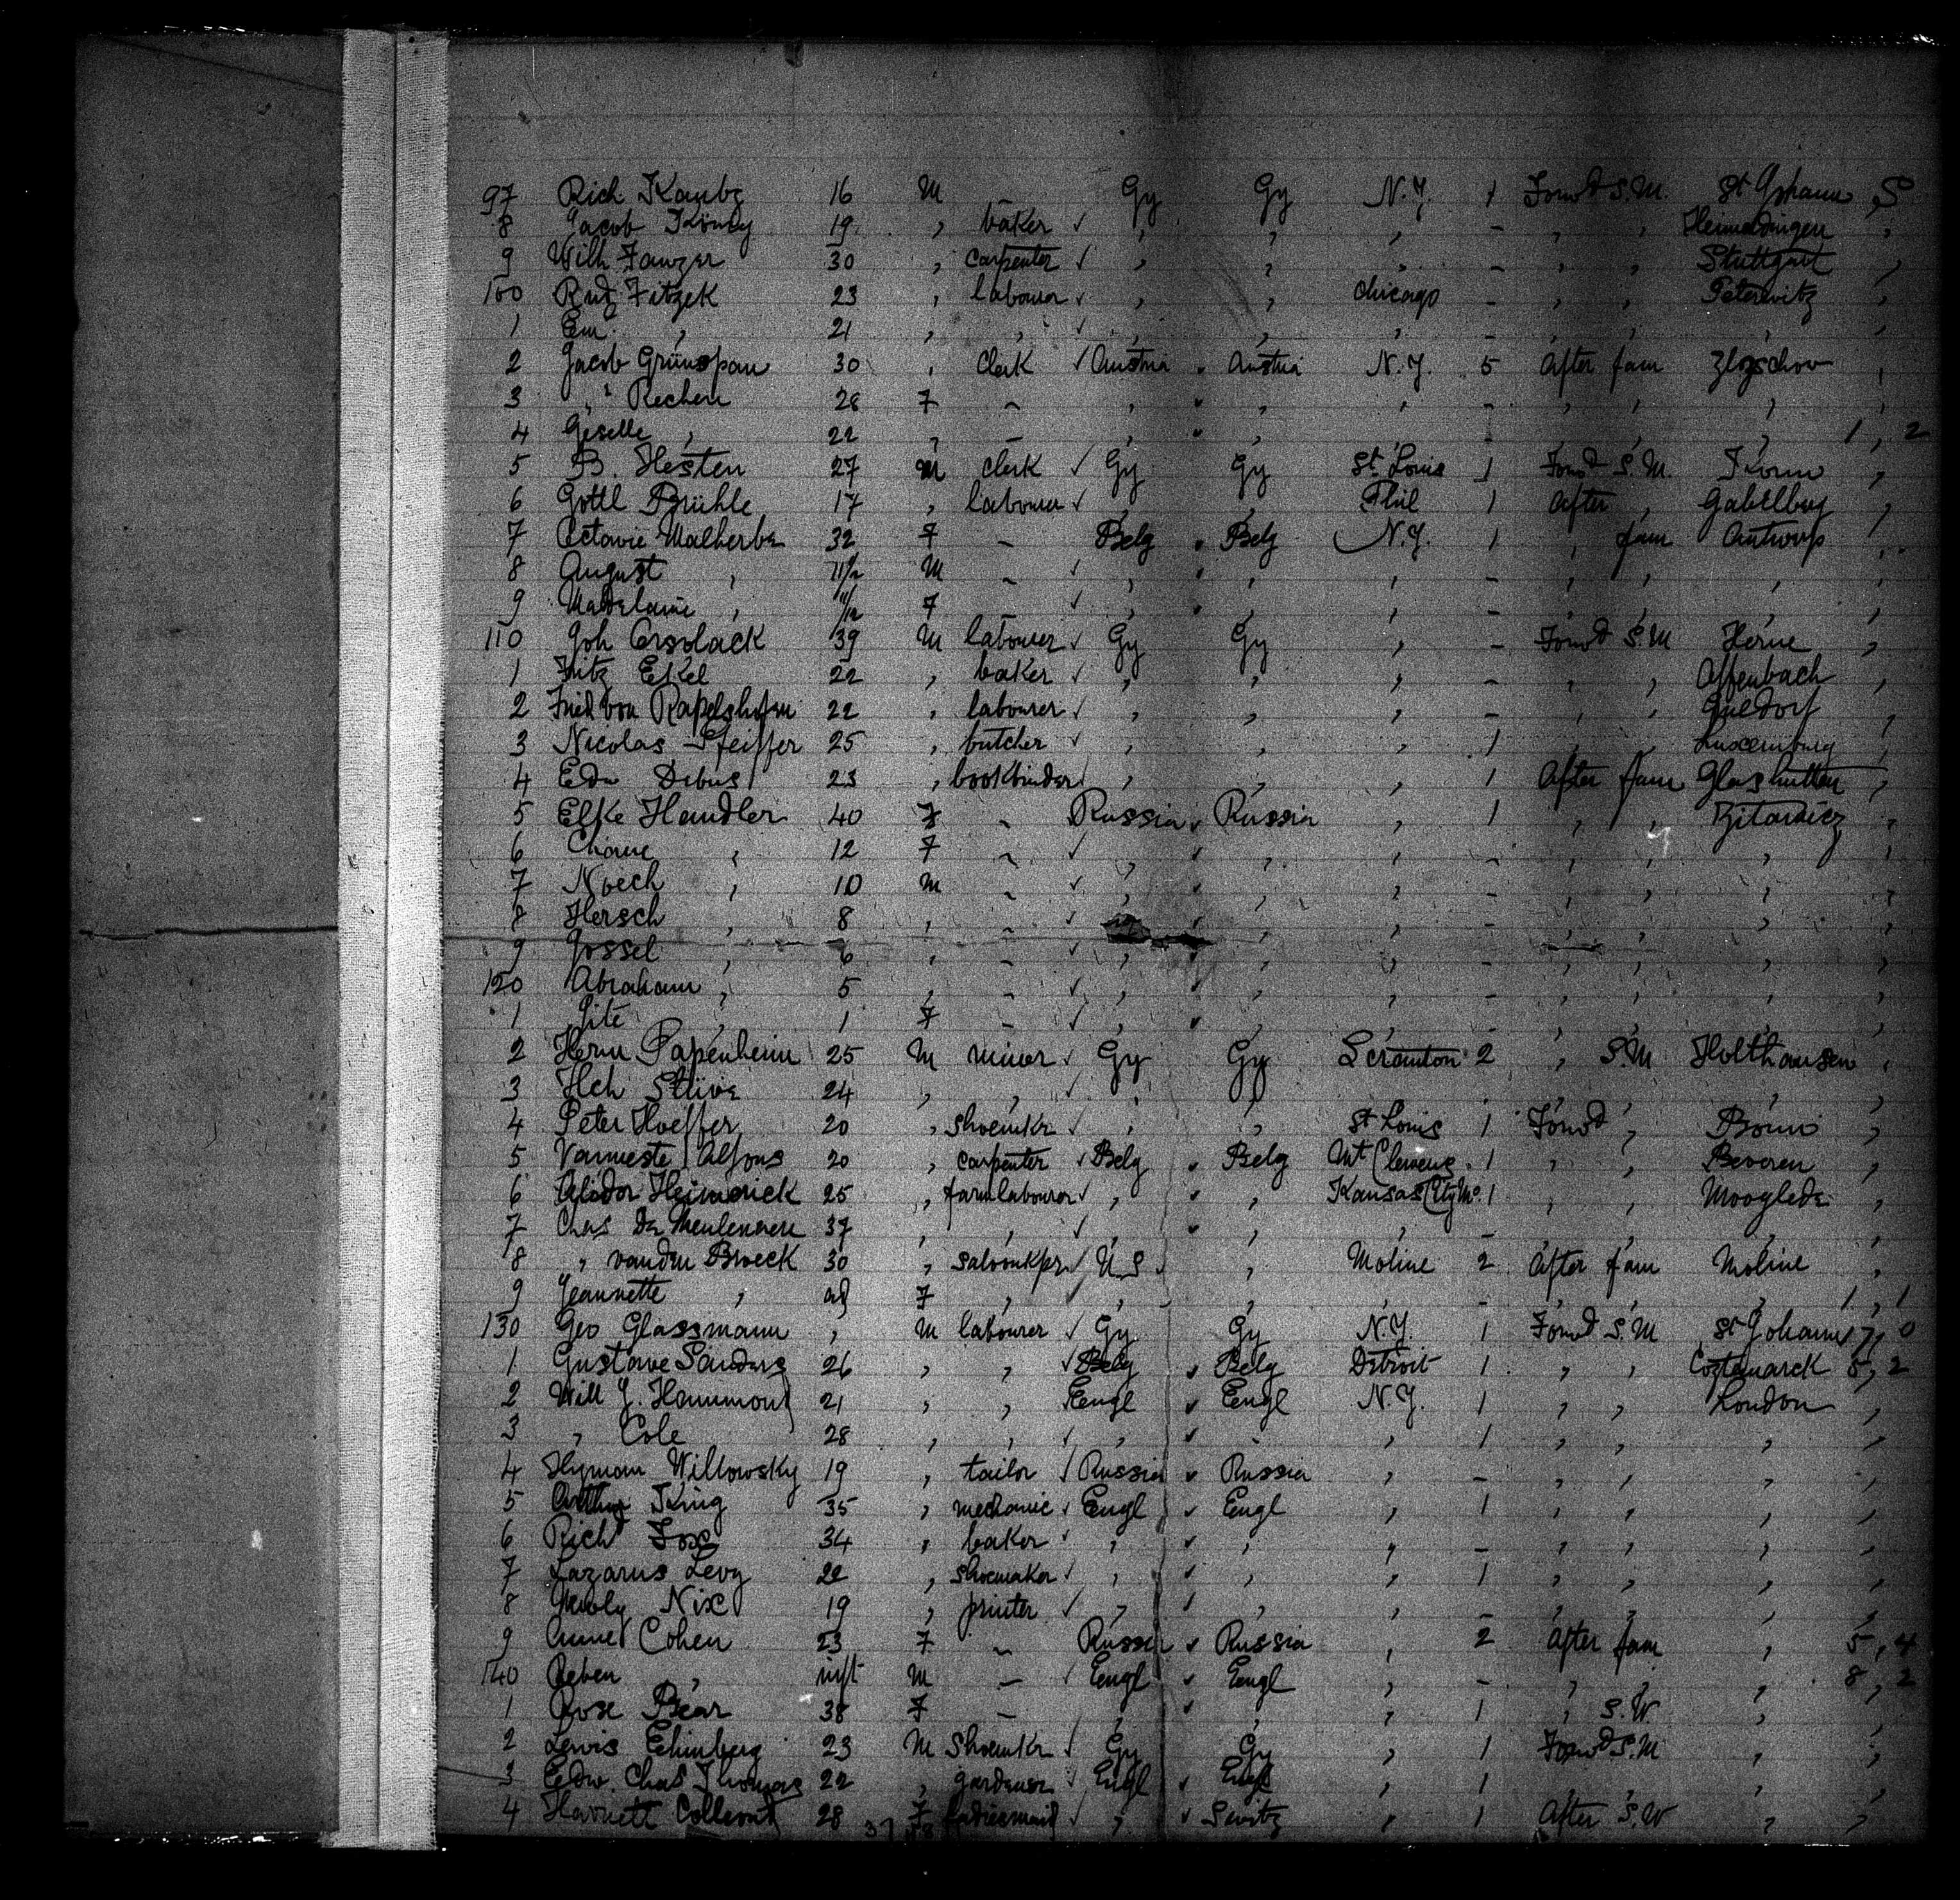 97 Rich Kaubz 16 M Gy Gy N.Y. 1 Forwd S.M. St Johann S
8 Jacob König 19 " baker ✓ " " " - " " Heimerdingen "
9 Wilh Fanzer 30 " carpenter ✓ " " " - " " Stuttgart "
100 Rud Fitzek 23 " labourer ✓ " " Chicago - " " Peterwitz "
1 Em. " 21 " " ✓ " " " - " " " "
2 Jacob Grünspan 30 " Clerk ✓ Austria " Austria N.Y. 5 After fam Zlozschow "
3 " Rechen 28 F - " " " " - " " " "
4 Giselle " 22 " - " " " " - " " " 1, 2
5 B. Hesten 27 M clerk ✓ Gy Gy St. Louis 1 Forwd S.M. "
6 Gottl Brühle 17 " labourer ✓ " " Phil 1 After " "
7 Octavie Malherbe 32 F - Belg " Belg N.Y. 1 " fam Antwerp "
8 August " 11/2 M - ✓ " " " " - " " " "
9 Madelaine " 11/12 F ✓ " " " " - " " " "
110 Joh Orsolack 39 M labourer ✓ Gy Gy " - Forwd S.M Herne "
1 Fritz Ekel 22 " baker ✓ " " " - " " Offenbach "
2 Fried von Rapelshofen 22 " labourer ✓ " " " - " " "
3 Nicolas Pfeiffer 25 " butcher ✓ " " " 1 " " Luxemburg "
4 Edu Debus 23 " bookbinder ✓ " " " 1 After fam Glashutten "
5 Elke Handler 40 F - Russia ✓ Russia " 1 " " "
6 Chane " 12 F - ✓ " ✓ " " - " " " "
7 Noech " 10 M - ✓ " ✓ " " - " " " "
8 Hersch " 8 " - ✓ ✓ " " - " " " "
9 Jossel " 6 " - ✓ " ✓ " " - " " " "
120 Abraham " 5 " - ✓ " ✓ " " - " " " "
1 Gite " 1 F - ✓ " ✓ " " - " " " "
2 Herm Papenheim 25 M miner ✓ Gy Gy Scranton 2 " S.M Holthausen "
3 Hch Stüve 24 " " ✓ " " " - " " " "
4 Peter Hoeffer 20 " shoemkr ✓ " " St Louis 1 Forwd " Bonn "
5 Vanneste Alfons 20 " carpenter ✓ Belg ✓ Belg Mt Clemens 1 " " Beveren "
6 Alidor Heinderick 25 " farmlabourer ✓ " ✓ " Kansas City Mo. 1 " " Mooglede "
7 Chas De Meulenaere 37 " " ✓ " ✓ " " - " " " "
8 " vanden Broeck 30 " saloonkpr ✓ U.S. " Moline 2 After fam Moline "
9 Jeannette " ad F " " " " - " " " 1, 1
130 Geo Glassmann " M labourer ✓ Gy Gy N.Y. 1 Forwd S.M St Johann 17, 0
1 Gustave Sanders 26 " " ✓ Belg ✓ Belg Detroit 1 " " 5, 2
2 Will J. Hammond 21 " " Engl ✓ Engl N.Y. 1 " " London "
3 " Cole 28 " " ✓ " ✓ " " 1 " " " "
4 Hyman Willowsky 19 " tailor ✓ Russia ✓ Russia " - " " " "
5 Arthur King 35 " mechanic ✓ Engl ✓ Engl " 1 " " " "
6 Richd Fox 34 " baker ✓ " ✓ " " - " " " "
7 Lazarus Levy 22 " shoemaker ✓ " ✓ " " 1 " " " "
8 Nix 19 " printer ✓ " ✓ " " - " " " "
9 Annie Cohen 23 F - Russia ✓ Russia " 2 After fam " 5, 4
140 Reben " inft M - ✓ Engl ✓ Engl " - " " " 8, 2
1 Rose Bear 38 F - " ✓ " " 1 " S.W " "
2 Lewis Echinberg 23 M Shoemkr ✓ Gy Gy " 1 Forwd S.M " "
3 Edw. Chas Thomas 22 " gardener ✓ Engl ✓ Engl " 1 " " " "
4 Harnett 28 F ladiesmaid ✓ " ✓ Switz " 1 After S.W " "